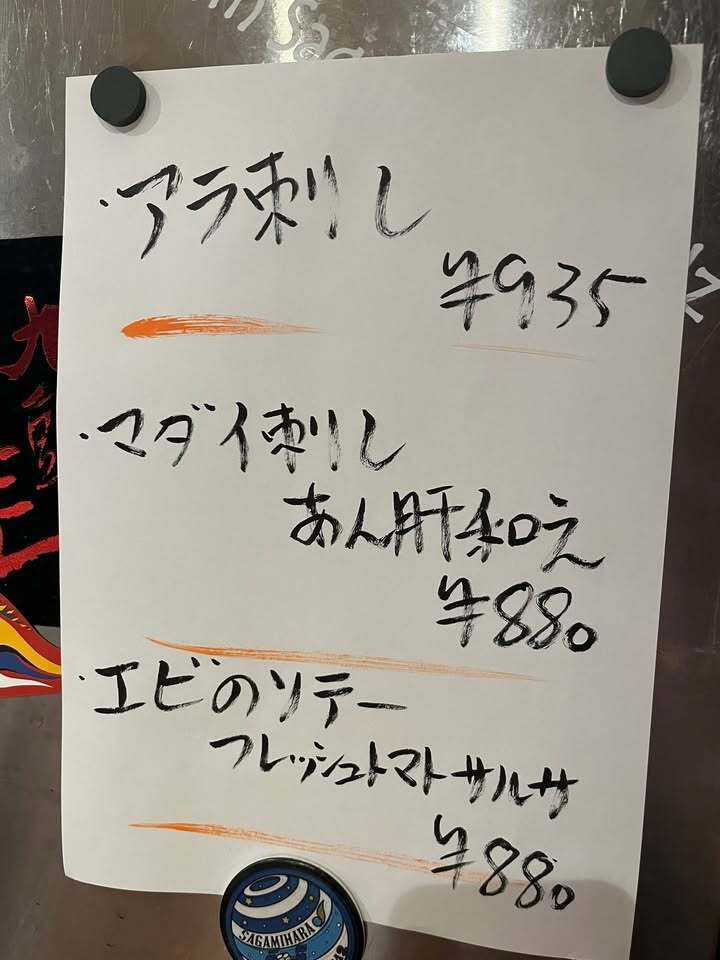 ・アラ刺し
¥935
・マダイ刺し
あん肝和え
¥880
・エビのソテー
フレッシュトマトサルサ
¥880
SAGAMIHARA